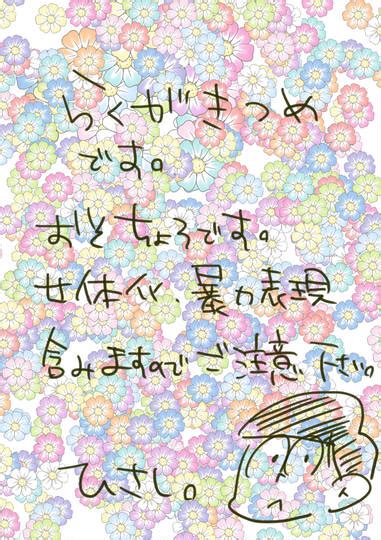 らくがきつめ
です。
おそちょろです。
女体化、暴力表現
含みますのでご注意下さい。
ひさし。